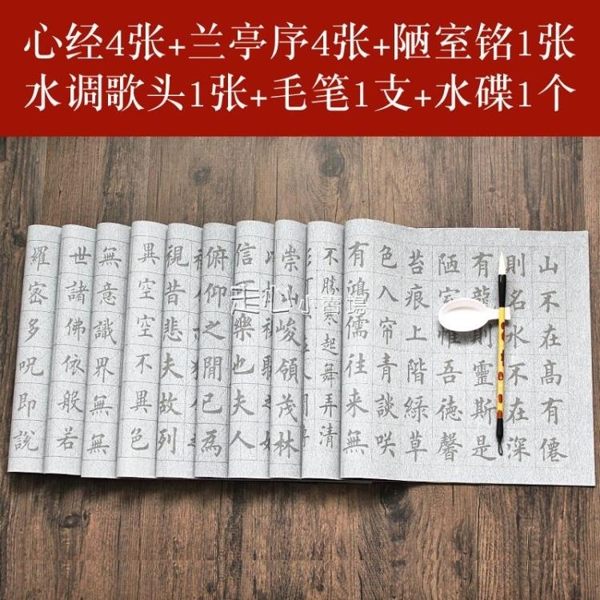 心经4张+兰亭序4张+陋室铭1张
水调歌头1张+毛笔1支+水碟1个
山不在髙有僊
則名水不在深
有靈斯是
陋室吾德馨
苔痕上階緑草
色入帘青談咲
有鴻儒往来無
不勝寒起舞弄清
崇山峻領茂林
信樂也夫人
俯仰之閒已為
視昔悲夫故列
異空空不異色
無意識界無無
世諸佛依般若
羅密多呪即說